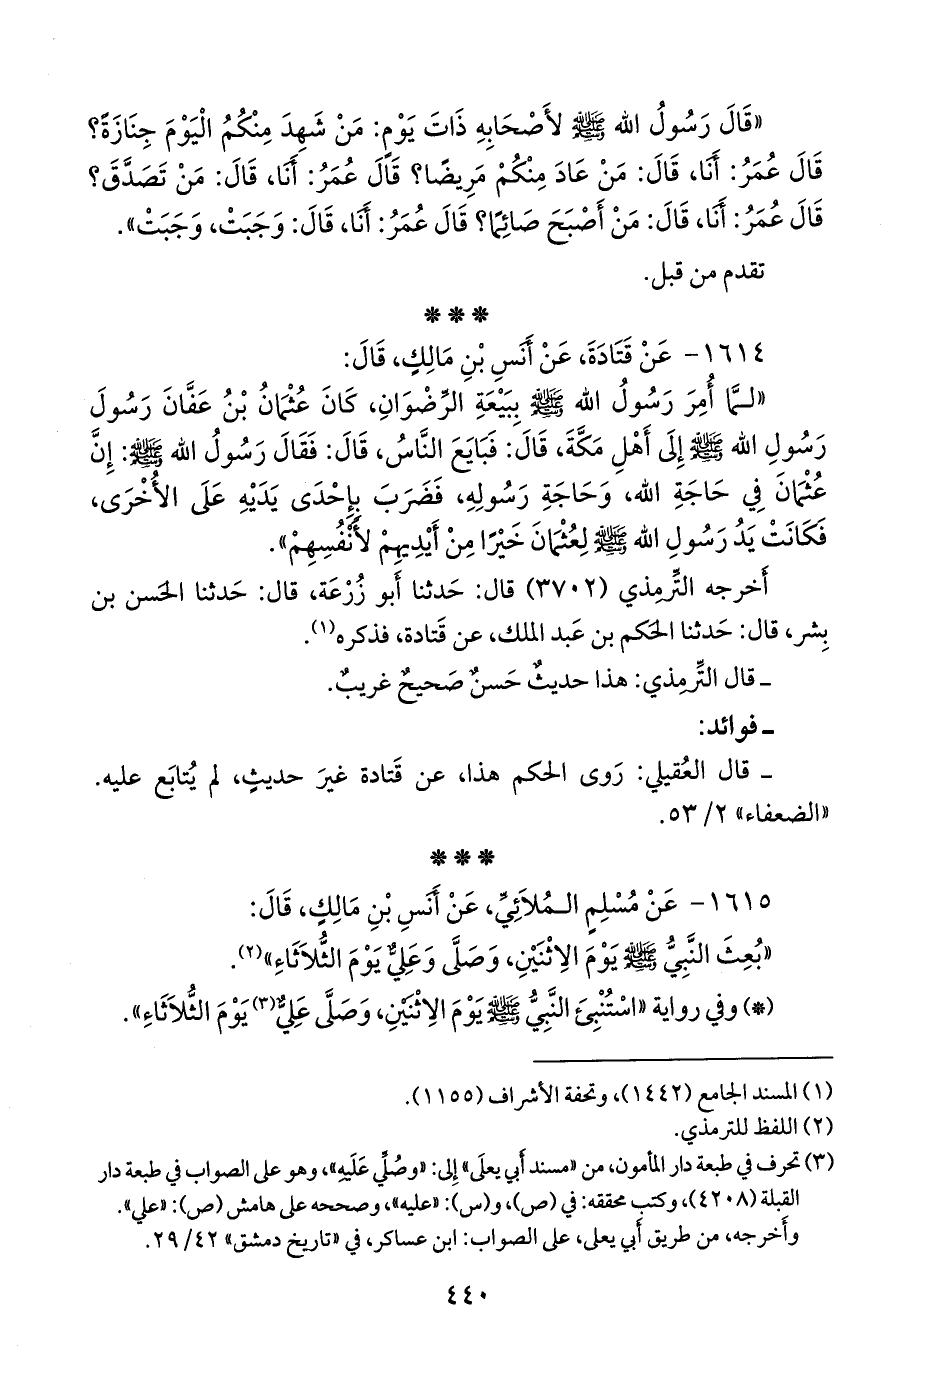 «قَالَ رَسُولُ الله ﷺ لأَصْحَابِهِ ذَاتَ يَوْمٍ: مَنْ شَهِدَ مِنْكُمُ الْيَوْمَ جِنَازَةً؟
قَالَ عُمَرُ: أَنَا، قَالَ: مَنْ عَادَ مِنْكُمْ مَرِيضًا؟ قَالَ عُمَرُ: أَنَا، قَالَ: مَنْ تَصَدَّقَ؟
قَالَ عُمَرُ: أَنَا، قَالَ: مَنْ أَصْبَحَ صَائِمًا؟ قَالَ عُمَرُ: أَنَا، قَالَ: وَجَبَتْ، وَجَبَتْ».
تقدم من قبل.
* * *
١٦١٤- عَنْ قَتَادَةَ، عَنْ أَنَسِ بْنِ مَالِكٍ، قَالَ:
«لَـمَّا أُمِرَ رَسُولُ الله ﷺ بِبَيْعَةِ الرِّضْوَانِ، كَانَ عُثْمَانُ بْنُ عَفَّانَ رَسُولَ
رَسُولِ الله ﷺ إِلَى أَهْلِ مَكَّةَ، قَالَ: فَبَايَعَ النَّاسُ، قَالَ: فَقَالَ رَسُولُ الله ﷺ: إِنَّ
عُثْمَانَ فِي حَاجَةِ الله، وَحَاجَةِ رَسُولِهِ، فَضَرَبَ بِإِحْدَى يَدَيْهِ عَلَى الأُخْرَى،
فَكَانَتْ يَدُ رَسُولِ الله ﷺ لِعُثْمَانَ خَيْرًا مِنْ أَيْدِيهِمْ لأَنْفُسِهِمْ».
أَخرجه التِّرمِذي (٣٧٠٢) قال: حَدثنا أَبو زُرْعَة، قال: حَدثنا الحَسن بن
بِشر، قال: حَدثنا الحَكم بن عَبد الملك، عن قَتادة، فذكره(١).
ـ قال التِّرمِذي: هذا حديثٌ حَسنٌ صَحيحٌ غريبٌ.
ـ فوائد:
ـ قال العُقيلي: رَوى الحَكم هذا، عن قَتادة غيرَ حديثٍ، لم يُتابَع عليه.
«الضعفاء» ٢/ ٥٣.
* * *
١٦١٥- عَنْ مُسْلِمٍ الـمُلاَئِيِّ، عَنْ أَنَسِ بْنِ مَالِكٍ، قَالَ:
«بُعِثَ النَّبِيُّ ﷺ يَوْمَ الِاثْنَيْنِ، وَصَلَّى وَعَلِيٌّ يَوْمَ الثُّلاَثَاءِ»(٢).
(*) وفي رواية «اسْتُنْبِئَ النَّبِيُّ ﷺ يَوْمَ الِاثْنَيْنِ، وَصَلَّى عَلِيٌّ(٣) يَوْمَ الثُّلاَثَاءِ».
(١) المسند الجامع (١٤٤٢)، وتحفة الأشراف (١١٥٥).
(٢) اللفظ للترمذي.
(٣) تحرف في طبعة دار المأمون، من «مسند أَبي يعلَى» إلى: «وصُلِّي عَلَيهِ»، وهو على الصواب في طبعة دار
القبلة (٤٢٠٨)، وكتب محققه: في (ص)، و(س): «عليه»، وصححه على هامش (ص): «علي».
وأَخرجه، من طريق أَبي يعلى، على الصواب: ابن عساكر، في «تاريخ دمشق» ٤٢/ ٢٩.
٤٤٠